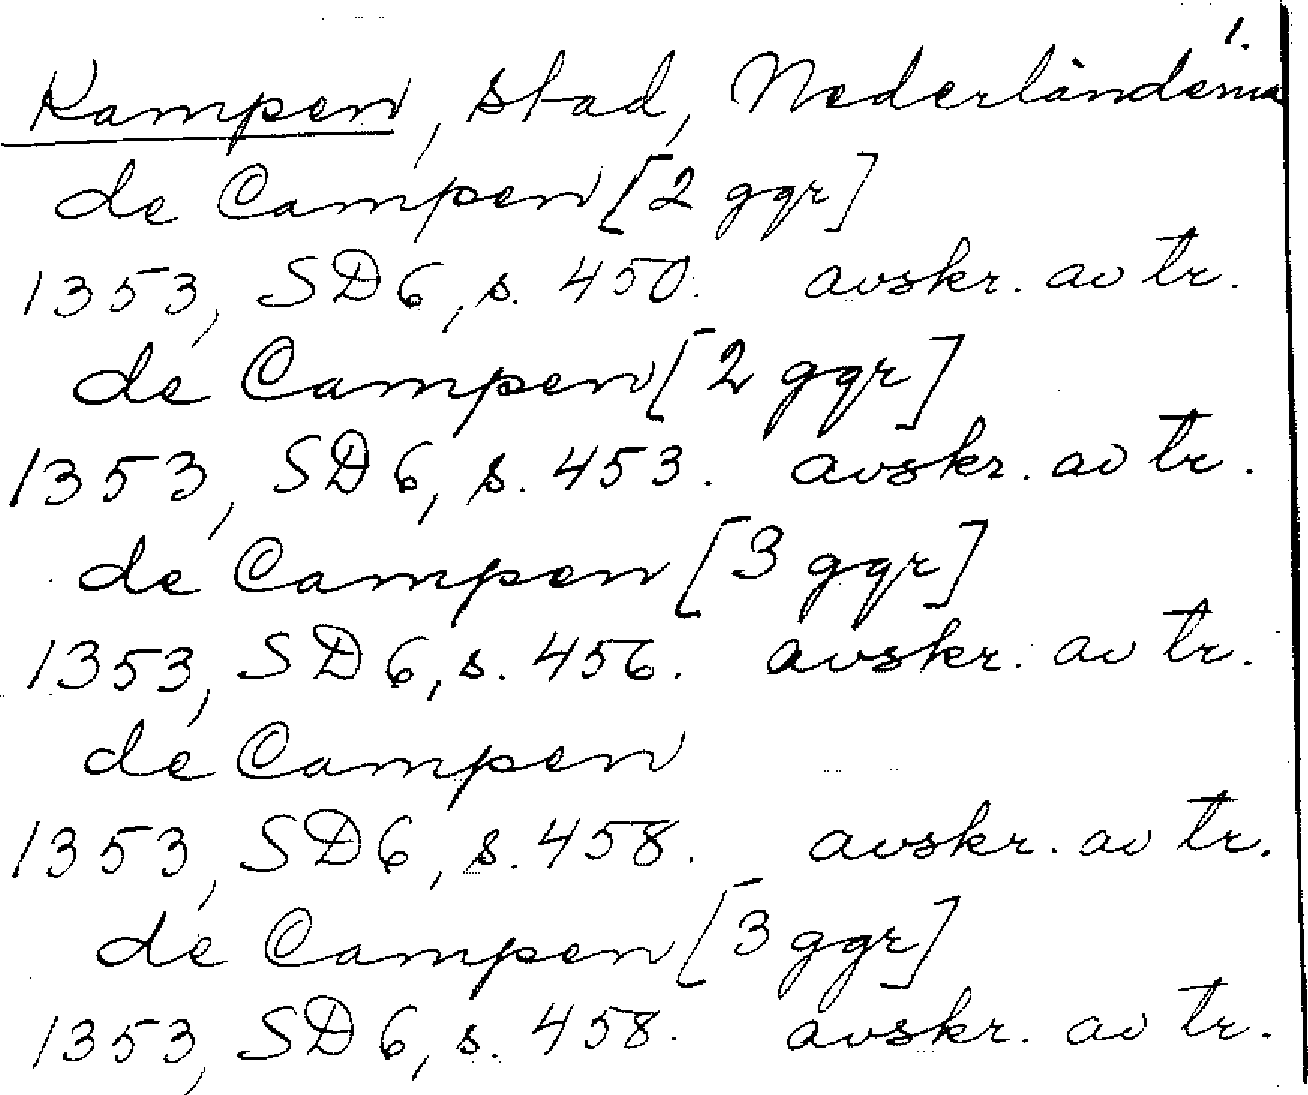 1.
Kampen, stad, Nederländerna
de Campen [2 ggr]
1353, SD6, s. 450. avskr. av tr.
de Campen [2 ggr]
1353, SD6, s. 453. avskr. av tr.
de Campen [3 ggr]
1353, SD6, s. 456. avskr. av tr.
de Campen
1353, SD6, s. 458. avskr. av tr.
de Campen [3 ggr]
1353, SD6, s. 458. avskr. av tr.